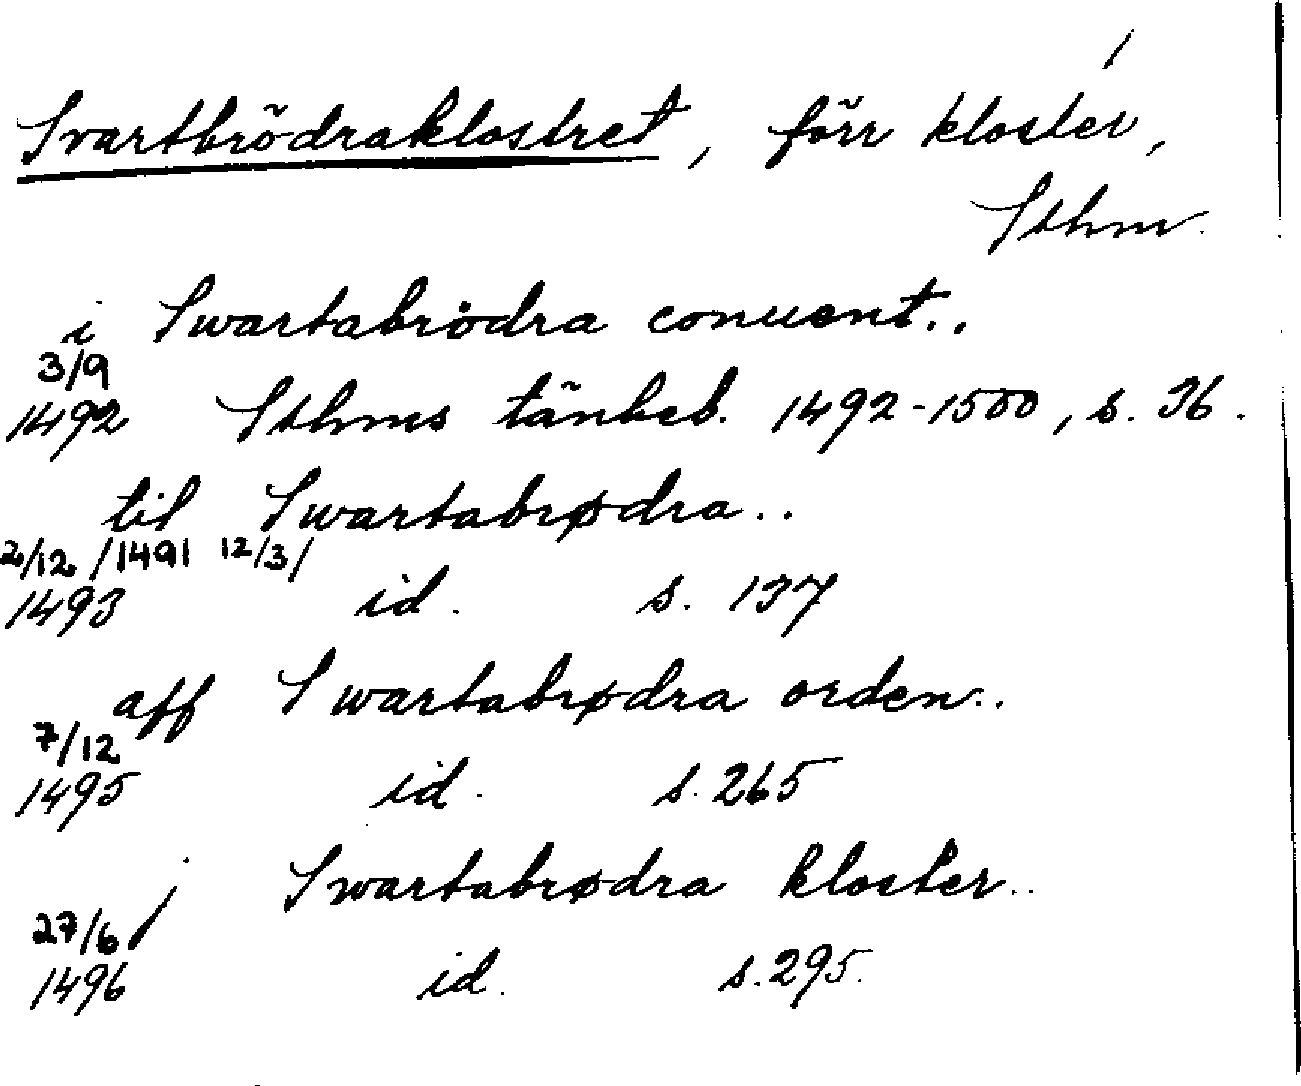 /
Svartbrödraklostret, förr kloster,
Sthm.
i Swartabrödra conuent..
3/9
1492 Sthms tänkeb. 1492-1500, s. 36.
til Swartabrødra..
2/12 /1491 12/3/
1493 id. s. 137
aff Swartabrødra orden..
7/12
1495 id. s. 265
j Swartabrødra kloster..
27/6
1496 id. s. 295.